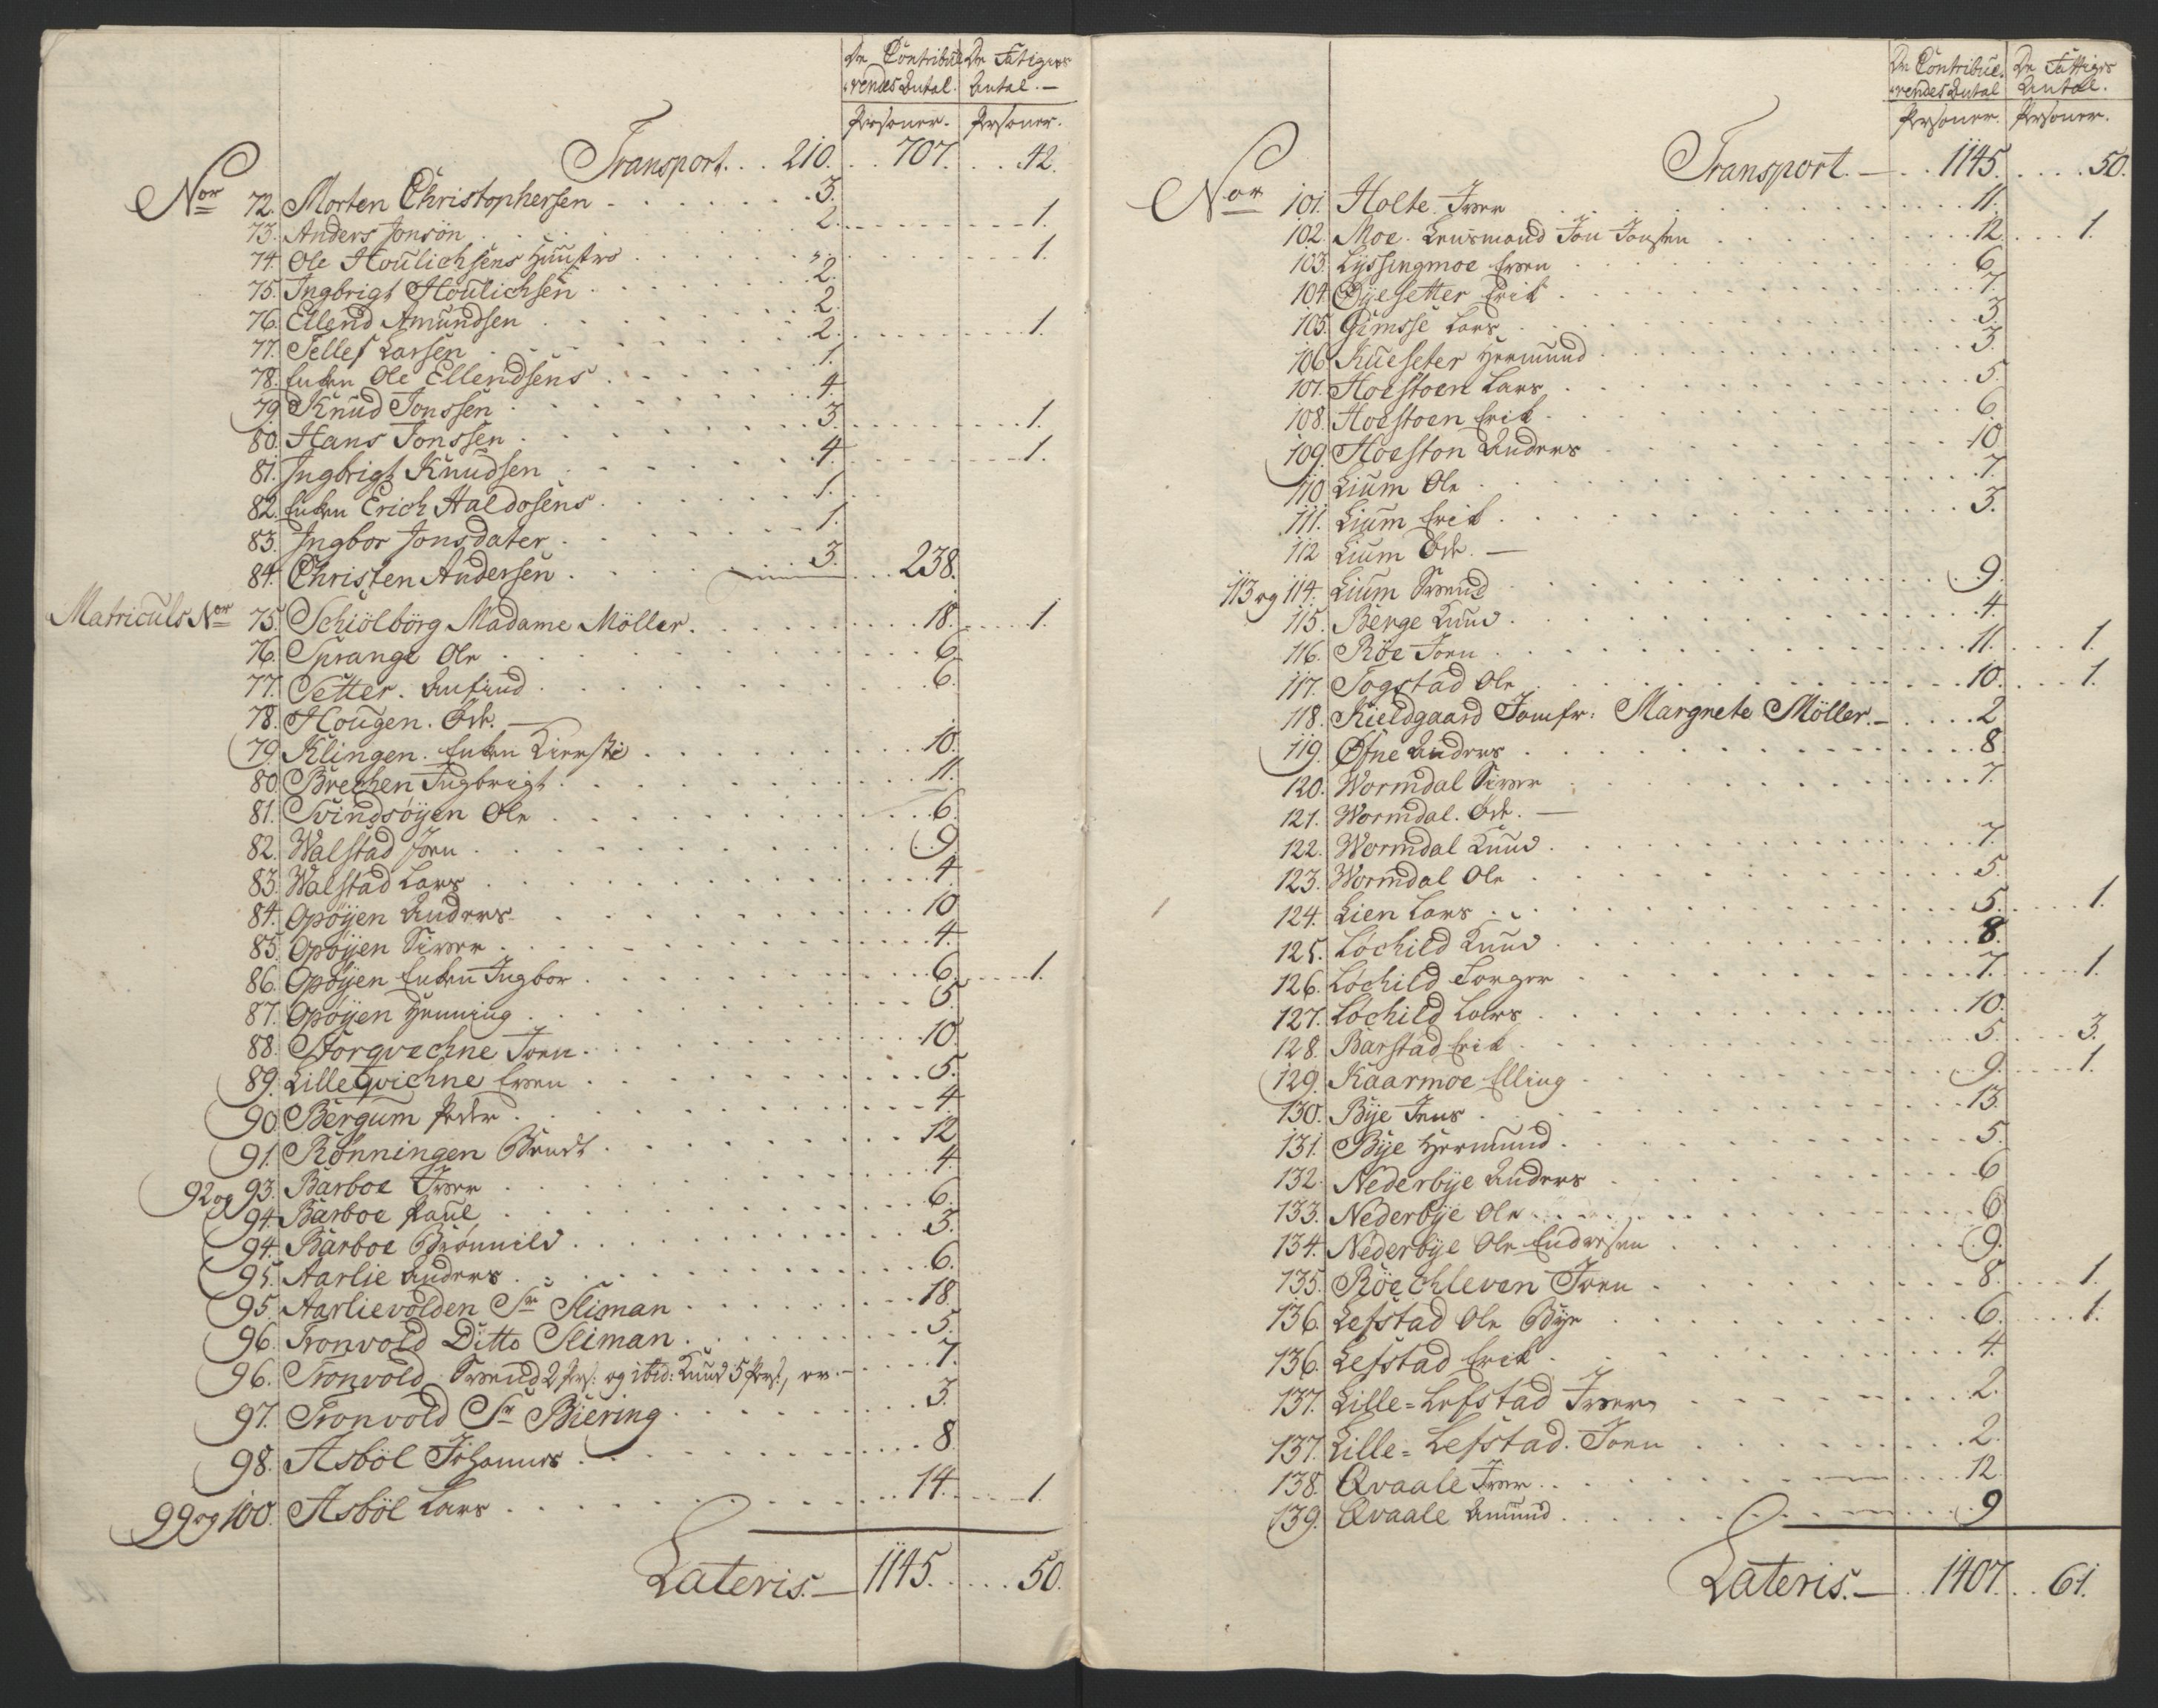 De Contribue- De Fatiges
rendes Antal. Antal. —
Personer. Personer.
Transport. . . 210. . . 707. . . 42.
Nor 72. Morten Christophersen . . . 3.
73. Anders Jonsön . . . 2. . . . 1.
74. Ole Houlichsens Huustro . . . „ . . . 1.
75. Ingbrigt Houlichsen . . . 2.
76. Ellend Amundsen . . . 2.
77. Tellef Larsen . . . 2. . . . 1.
78. Enken Ole Ellendsens . . . 1.
79. Knud Jonssen . . . 4.
80. Hans Jonssen . . . 3. . . . 1.
81. Ingbrigt Knudsen . . . 4. . . . 1.
82. Enken Erich Haldosens . . . 1.
83. Ingbor Jonsdater . . . 1.
84. Christen Andersen . . . 3. . . 238.
Matriculs Nor 75. Schiölbörg Madame Möller . . . 18. . . . 1.
76. Sprange Ole . . . 6.
77. Setter. Anfind . . . 6.
78. Hougen. Öde. —
79. Klingen. Enken Kirsti . . . 10.
80. Brechen Ingbrigt . . . 11.
81. Svindsøyen Ole . . . 6.
82. Walstad Joen . . . 9.
83. Walstad Lars . . . 4.
84. Opøyen Anders . . . 10.
85. Opøyen Siver . . . 4.
86. Opøyen Enken Ingbor . . . 6. . . . 1.
87. Opøyen Henning . . . 5.
88. Storqvechne Joen . . . 10.
89. Lilleqvichne Even . . . 5.
90. Bergum Peder . . . 4.
91. Rønningen Bendt . . . 12.
92 og 93. Barboe Iver . . . 4.
94. Barboe Paul . . . 6.
94. Barboe Grönnild . . . 3.
95. Aarlie Anders . . . 6.
95. Aarlievolden Sr Sliman . . . 18.
96. Tronvold Ditto Sliman . . . 5.
96. Tronvold Svend 2 Pers: og ibid: Knud 5 Pers:, er. — . . . 7.
97. Tronvold Sr Biering . . . 3.
98. Asböl Johannes . . . 8.
99 og 100. Asböl Lars . . . 14. . . . 1.
Lateris. — 1145. . . . 50.
De Contribue- De Fattiges
rendes Antal Antal.
Personer. Personer.
Transport. — . . 1145. . . . 50.
Nor 101. Holte Iver . . . 11.
102. Moe. Lensmand Jon Jonsen . . . 12. . . 1.
103. Lyssingmoe Even . . . 6.
104. Øyesetter Erik . . . 7.
105. Gimsse Lars . . . 3.
106. Kueseter Hermund . . . 3.
107. Hoestoen Lars . . . 5.
108. Hoestoen Erik . . . 6.
109. Hoeston Anders . . . 10.
110. Lium Ole . . . 7.
111. Lium Erik . . . 3.
112. Lium Öde. —
113 og 114. Lium Svend . . . 9.
115. Berge Knud . . . 4.
116. Röe Joen . . . 11. . . . 1.
117. Togstad Ole . . . 10. . . . 1.
118. Kieldgaard Jomfr: Margrete Möller. — . . . 2
119. Øfne Anders . . . 8.
120. Wormdal Siver . . . 7.
121. Wormdal. Öde. —
122. Wormdal Knud . . . 7.
123. Wormdal Ole . . . 5.
124. Lien Lars . . . 5. . . . 1.
125. Løchild Knud . . . 8.
126. Løchild Torger . . . 7. . . . 1.
127. Løchild Lars . . . 10.
128. Barstad Erik . . . 5. . . . 3.
129. Kaarmoe Elling . . . 9. . . . 1.
130. Bye Jens . . . 13.
131. Bye Hermund . . . 5.
132. Nederbye Anders . . . 6
133. Nederbye Ole . . . 6.
134. Nederbye Ole Endresen . . . 9.
135. Röechleven Joen . . . 8. . . . 1.
136. Lefstad Ole Bye . . . 6. . . . 1.
136. Lefstad Erik . . . 4.
137. Lille-Lefstad Iver . . . 2.
137. Lille-Lefstad. Joen . . . 2.
138. Qvaale Iver . . . 12.
139. Qvaale Amund . . . 9
Lateris. — . . 1407. . . 61.